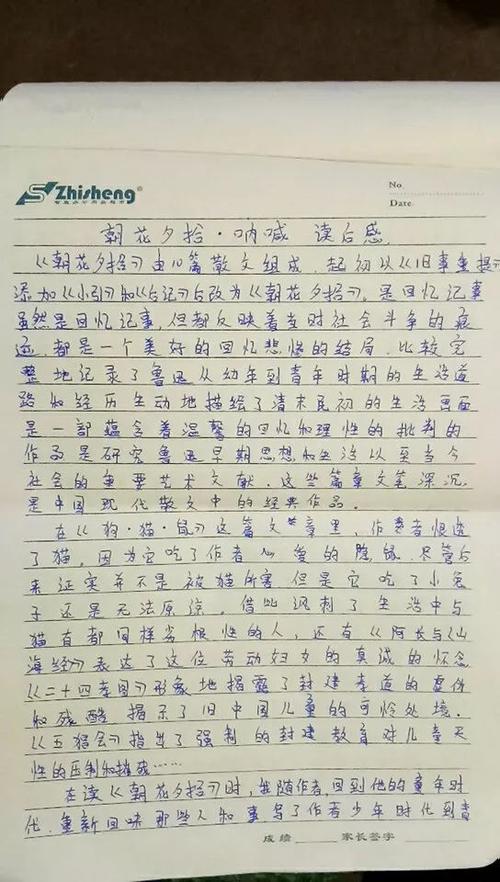 Zhisheng®
No.
Date.
朝花夕拾·呐喊 读后感
《朝花夕拾》由10篇散文组成,起初以《旧事重提》
添加《小引》和《后记》后改为《朝花夕拾》。是回忆记事
虽然是回忆记事,但都反映着当时社会斗争的痕
迹,都是一个美好的回忆悲惨的结局,比较完
整地记录了鲁迅从幼年到青年时期的生活道
路和经历生动地描绘了清末民初的生活画面
是一部蕴含着温馨的回忆和理性的批判的
作品是研究鲁迅早期思想和生活以至当今
社会的重要艺术文献。这些篇章文笔深沉
是中国现代散文中的经典作品。
在《狗·猫·鼠》这篇文章里,作者恨透
了猫,因为它吃了作者心爱的隐鼠,尽管后
来证实并不是被猫所害但是它吃了小兔
子还是无法原谅。借此讽刺了生活中与
猫有都同样劣根性的人,还有《阿长与《山
海经》表达了这位劳动妇女的真诚的怀念
《二十四孝图》形象地揭露了封建孝道的虚伪
和残酷 揭示了旧中国儿童的可怜处境.
《五猖会》指出了强制的封建教育对儿童天
性的压制和摧残……
在读《朝花夕拾》时,我随作者回到他的童年时
代,重新回味那些人和事写了作者少年时代到青
成绩 家长签字